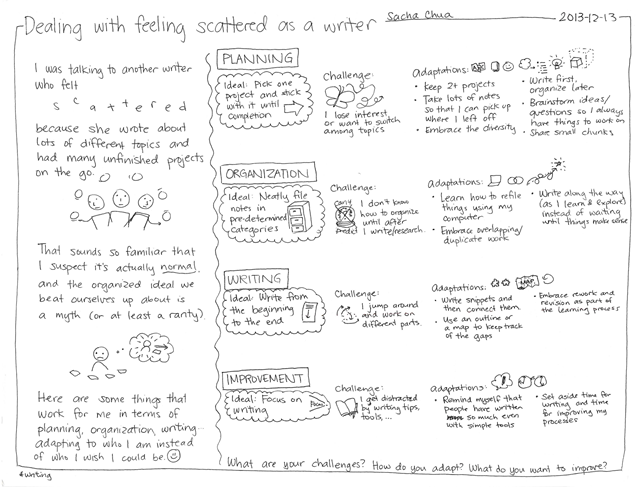 Dealing with feeling scattered as a writer
Sacha Chua
2013-12-13
I was talking to another writer
who felt
scattered
because she wrote about
lots of different topics and
had many unfinished projects
on the go.
That sounds so familiar that
I suspect it's actually normal,
and the organized ideal we
beat ourselves up about is
a myth (or at least a rarity).
Here are some things that
work for me in terms of
planning, organization, writing...
adapting to who I am instead
of who I wish I could be.
#writing
PLANNING
Ideal: Pick one
project and stick
with it until
completion
Challenge:
I lose interest
or want to switch
among topics
Adaptations:
• Keep 2+ projects
• Take lots of notes
so that I can pick up
where I left off
• Embrace the diversity
• Write first,
organize later
• Brainstorm ideas/
questions so I always
have things to work on
• Share small chunks
ORGANIZATION
Ideal: Neatly file
notes in
pre-determined
categories
Challenge:
Can't
predict
I don't know
how to organize
until after
I write/research.
Adaptations:
• Learn how to refile
things using my
computer
• Embrace overlapping/
duplicate work
• Write along the way
(as I learn & explore)
instead of waiting
until things make sense
WRITING
Ideal: Write from
the beginning
to the end
Challenge:
I jump around
and work on
different parts.
Adaptations:
MAP
• Write snippets and
then connect them.
• Use an outline or
a map to keep track
of the gaps
• Embrace rework and
revision as part of
the learning process
IMPROVEMENT
Ideal: Focus on
writing
Focus...
Challenge:
I get distracted
by writing tips,
tools,...
Adaptations:
• Remind myself that
people have written
so much even
with simple tools
• Set aside time for
writing and time
for improving my
processes
What are your challenges? How do you adapt? What do you want to improve?